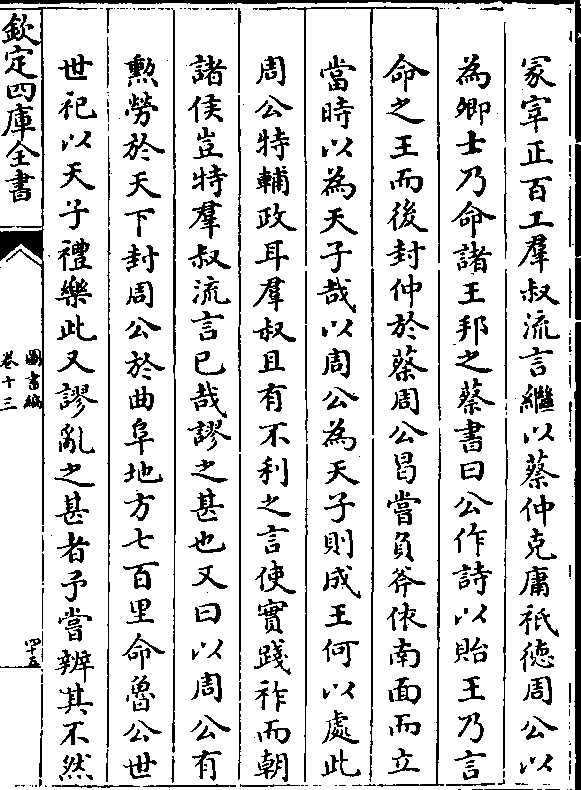 冢宰正百工羣叔流言繼以蔡仲克庸祗德周公以
為卿士乃命諸王邦之蔡書曰公作詩以貽王乃言
命之王而後封仲於蔡周公曷嘗負斧依南面而立
當時以為天子哉以周公為天子則成王何以處此
周公特輔政耳羣叔且有不利之言使實踐祚而朝
諸侯豈特羣叔流言已哉謬之甚也又曰以周公有
勲勞於天下封周公於曲阜地方七百里命魯公世
世祀以天子禮樂此又謬亂之甚者予嘗辨其不然
欽定四庫全書
圖書編
卷十三
四十五